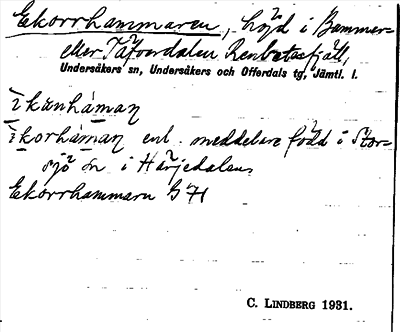 Ekorrhammaren, höjd i Bummer=
eller Tåforsdalen Renbetesfjäll,
Undersåkers sn, Undersåkers och Offerdals tg, Jämtl. l.
ikorhàman enl. meddelare född i Stor=
sjö sn i Härjedalen
Ekorrhammarn GH
C. LINDBERG 1931.